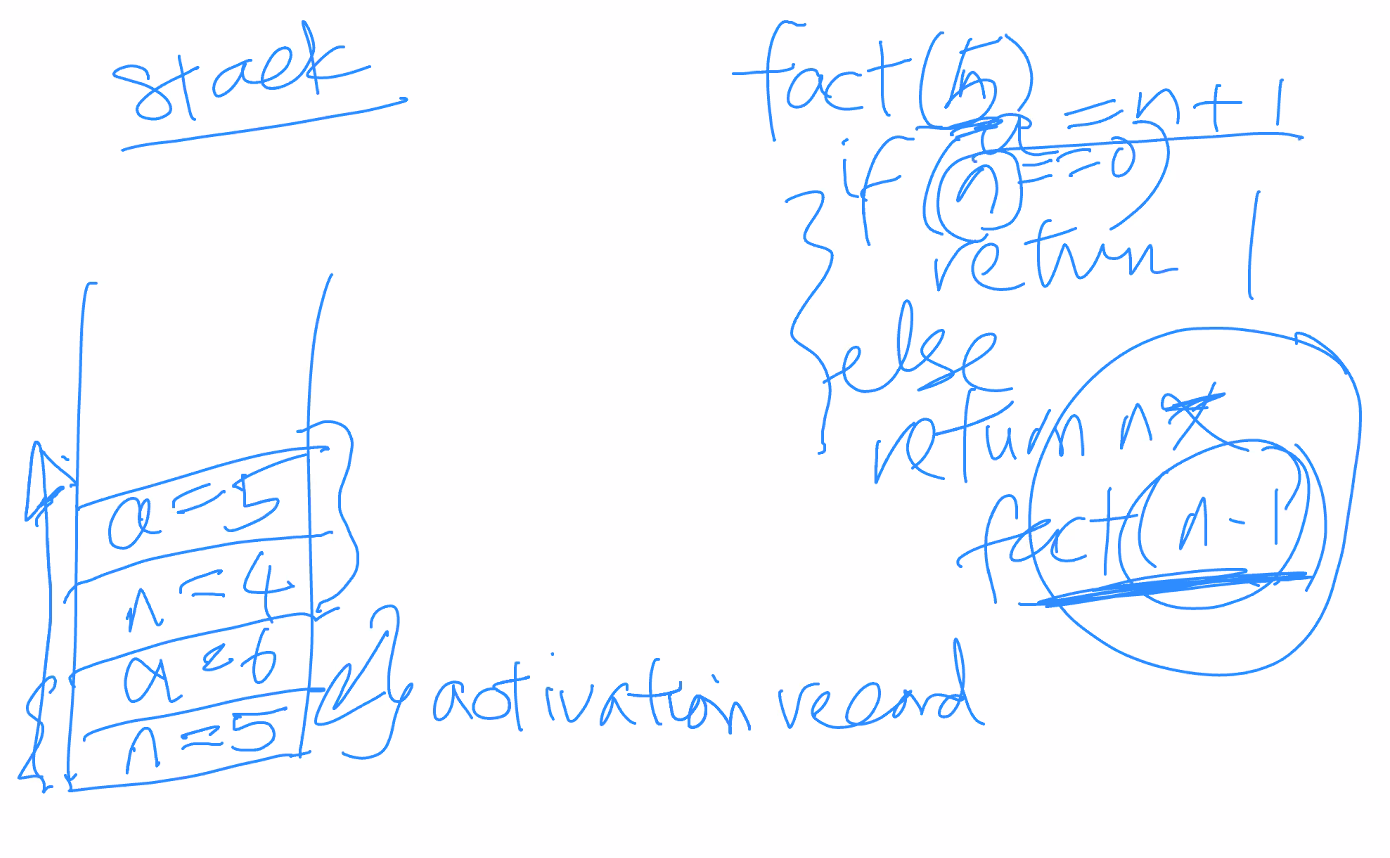 stack
fact(n)
a = n + 1
if (n == 0)
return 1
else
return n *
fact(n - 1)
a = 5
n = 4
a = 6
n = 5
activation record